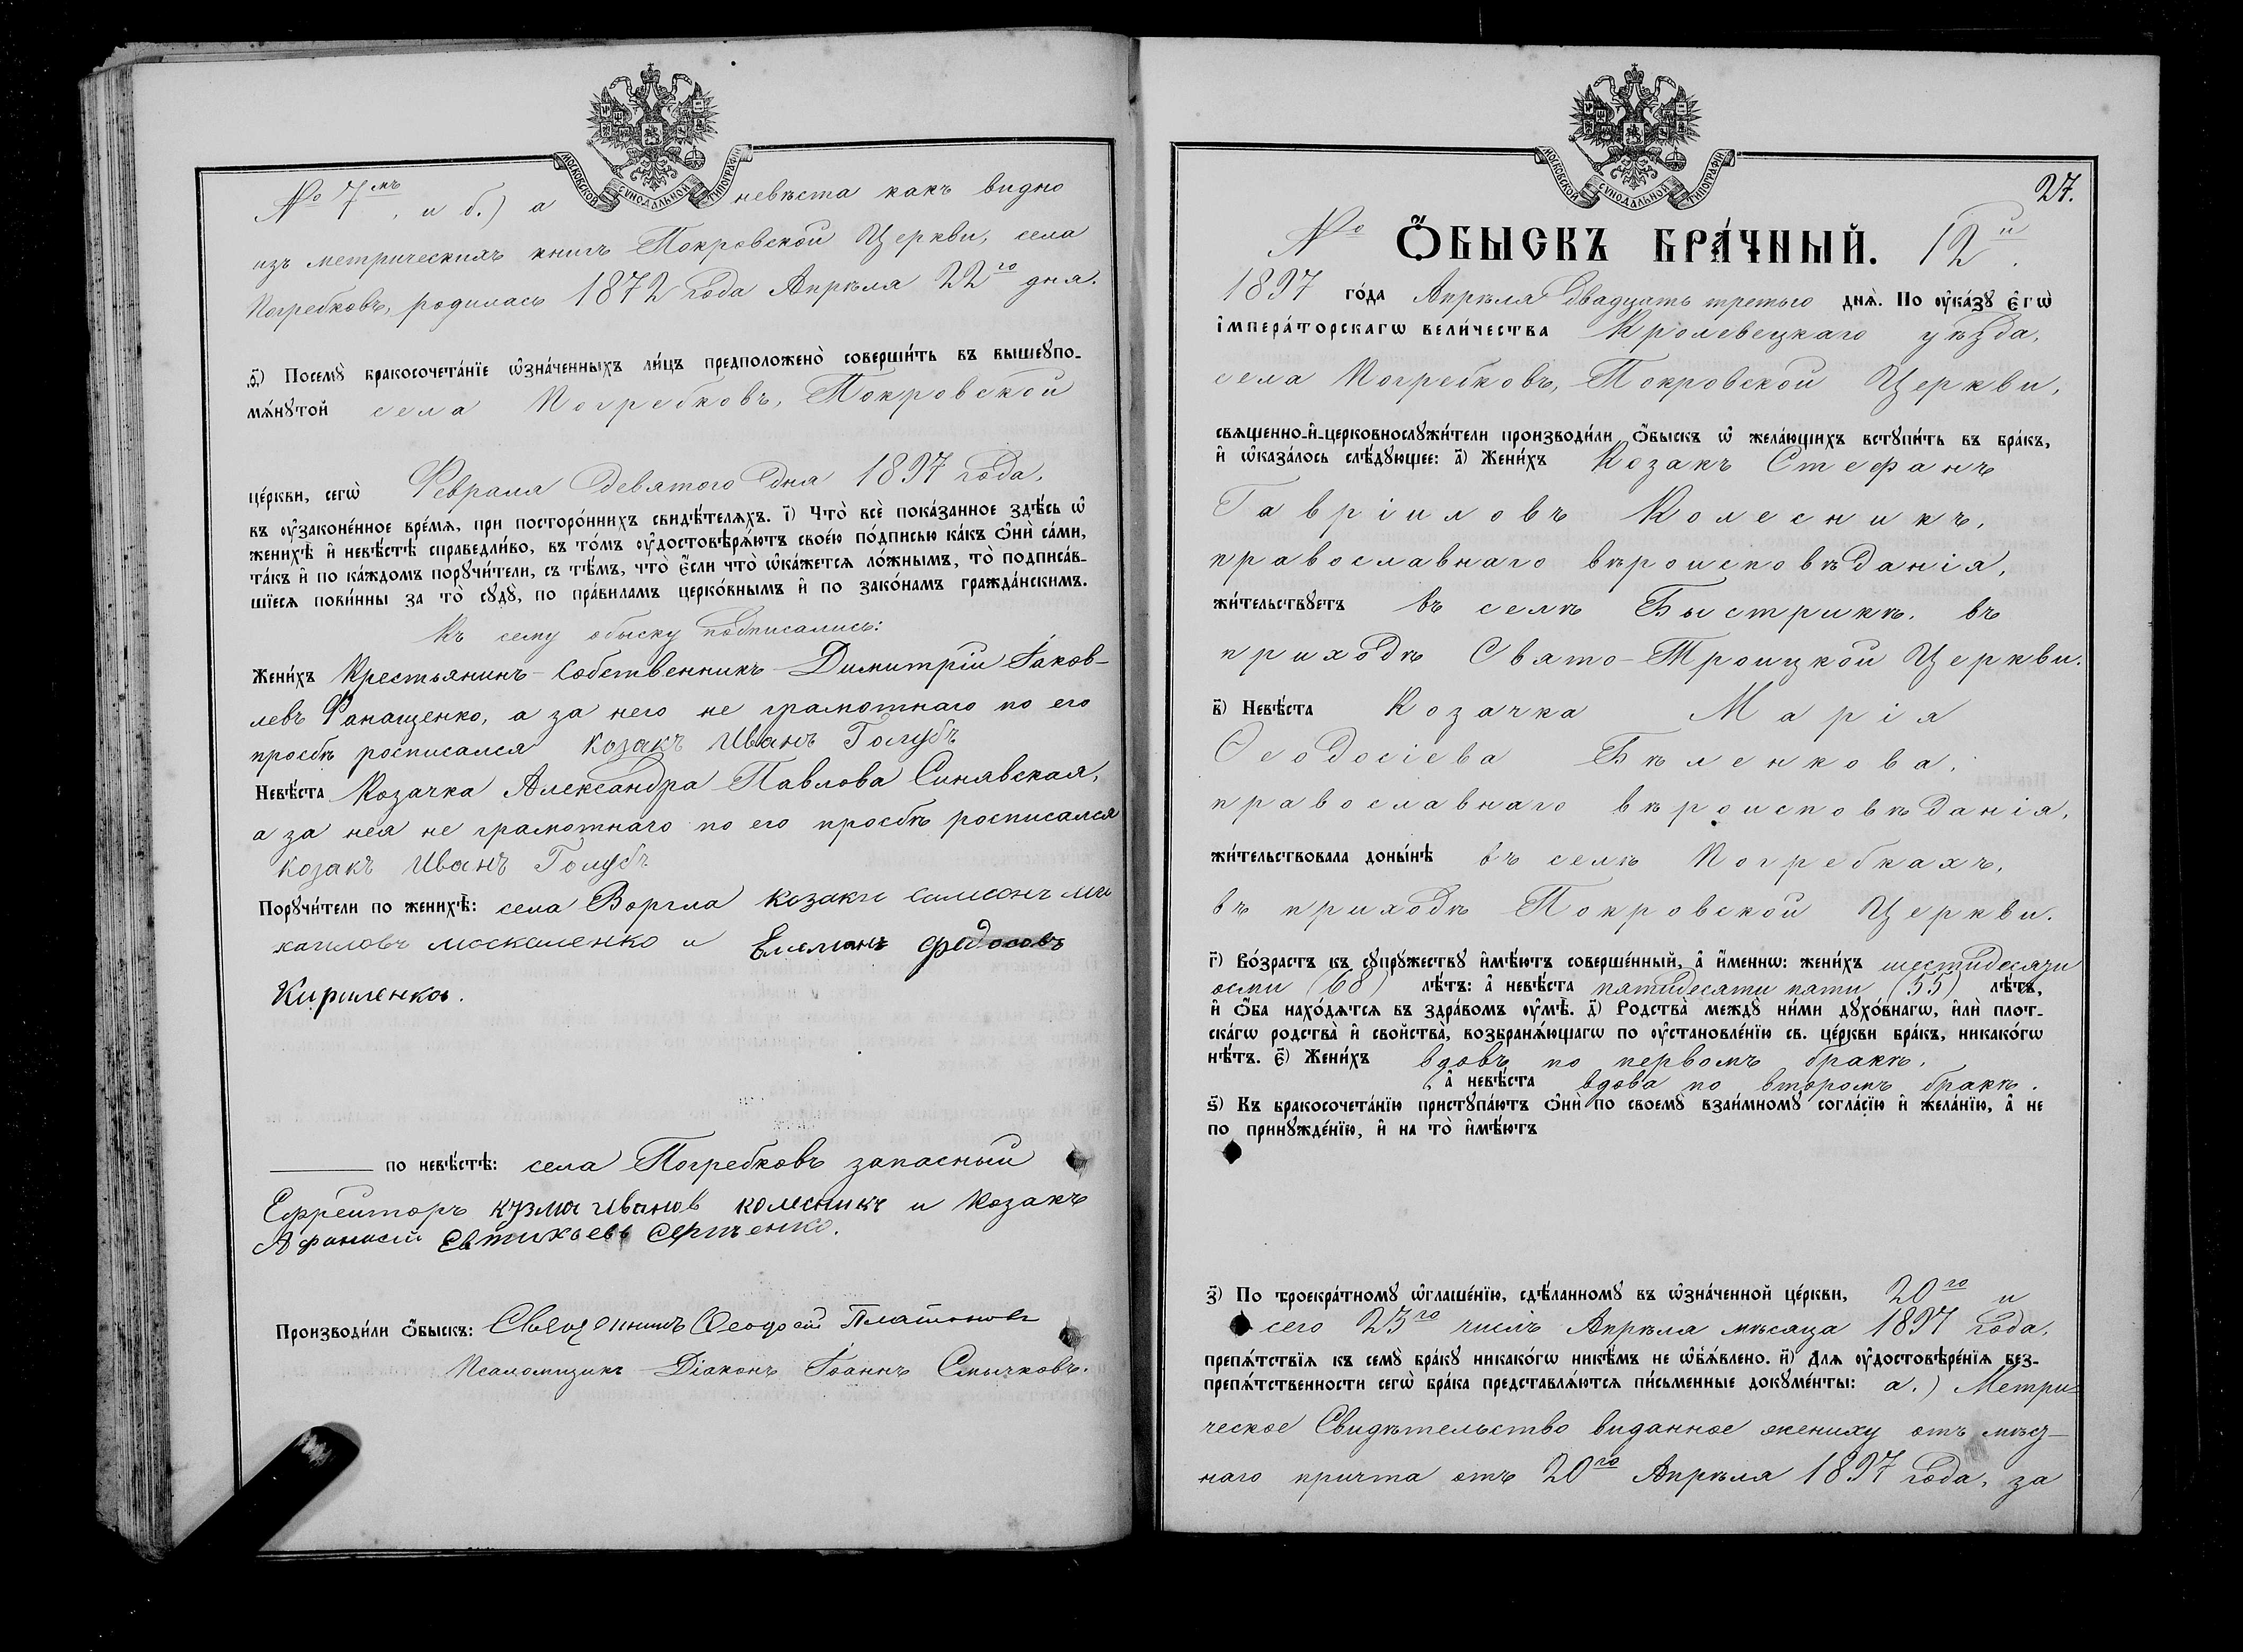 МОСКОВСКОЙ СУНОДАЛЬНОЙ ТИПОГРАФІИ
№ 7мъ, и б.) а невѣста какъ видно
изъ метрическихъ книгъ Покровской Церкви, села
Погребковъ, родилась 1872 года Апрѣля 22го дня.
ѳ҃) Посемꙋ̀ бракосочета́нїе ѡ҆зна́ченныхъ ли́цъ предположено̀ соверши́ть въ вышеꙋпо-
мѧ́нꙋтой села Погребковъ, Покровской
це́ркви, сегѡ̀ Февраля девятаго дня 1897 года,
въ ᲂу҆законе́нное вре́мѧ, при посторо́ннихъ свидѣ́телѧхъ. і҃) Что̀ всѐ пока́занное здѣ́сь ѡ҆
женихѣ̀ и҆ невѣ́стѣ справедли́во, въ то́мъ ᲂу҆достовѣрѧ́ютъ свое́ю по́дписью ка́къ ѻ҆нѝ са́ми,
та́къ и҆ по ка́ждомъ порꙋчи́тели, съ тѣ́мъ, что̀ є҆́сли что̀ ѡ҆ка́жетсѧ ло́жнымъ, то̀ подписа́в-
шїесѧ пови́нны за то̀ сꙋдꙋ̀, по пра́виламъ церко́внымъ и҆ по зако́намъ гражда́нскимъ.
Къ сему обыску подписались:
Жени́хъ Крестьянинъ-Собственникъ Димитрій Іаков-
левъ Фанащенко, а за него не грамотнаго по его
просбѣ росписался козакъ Иванъ Голубъ
Невѣ́ста Козачка Александра Павлова Синявская,
а за нея не грамотнаго по его просбѣ росписался
козакъ Иванъ Голубъ
Порꙋчи́тели по женихѣ̀: села Воргла козаки Самсонъ ми
хаиловъ москаленко и Емелианъ Федосовъ
Кириленко.
по невѣ́стѣ: села Погребковъ запасный
Ефрейторъ кузма иванов колесникъ и Козакъ
Афанасій Евтихьевъ Сергѣенко.
Производи́ли ѻ҆́быскъ: Священникъ Ѳеодосій Платоновъ
Псаломщикъ Діаконъ Іоаннъ Смычковъ.
МОСКОВСКОЙ СУНОДАЛЬНОЙ ТИПОГРАФІИ
27.
№ Ѻ҆́БЫСКЪ БРА́ЧНЫЙ. 12й.
1897 го́да Апрѣля двадцать третьяго днѧ̀. По ᲂу҆ка́зꙋ є҆гѡ̀
і҆мпера́торскагѡ вели́чества Кролевецкаго уѣзда,
села Погребковъ, Покровской Церкви,
свѧщенно-и҆-церковнослꙋжи́тели производи́ли ѻ҆́быскъ ѡ҆ жела́ющихъ встꙋпи́ть въ бра́къ,
и҆ ѡ҆каза́лось слѣ́дꙋющее: а҃) Жени́хъ Козакъ Стефанъ
Гавріиловъ Колесникъ,
православнаго вѣроисповѣданія,
жи́тельствꙋетъ въ селѣ Быстрикѣ. въ
приходѣ Свято-Троицкой Церкви.
в҃) Невѣ́ста Козачка Марія
Ѳеодосіева Бѣленкова,
православнаго вѣроисповѣданія,
жи́тельствовала доны́нѣ въ селѣ Погребкахъ,
въ приходѣ Покровской Церкви.
г҃) Во́зрастъ къ сꙋпрꙋ́жествꙋ и҆мѣ́ютъ соверше́нный, а҆ и҆́меннѡ: жени́хъ шестидесяти
осми (68) лѣ́тъ: а҆ невѣ́ста пятидесяти пяти (55) лѣ́тъ,
и҆ ѻ҆́ба нахо́дѧтсѧ въ здра́вомъ ᲂу҆мѣ̀. д҃) Родства̀ междꙋ̀ ни́ми дꙋхо́внагѡ, и҆лѝ плот-
ска́гѡ родства̀ и҆ сво́йства, возбранѧ́ющагѡ по ᲂу҆становле́нїю св. це́ркви бра́къ, никако́гѡ
нѣ́тъ. є҃) Жени́хъ вдовъ по первомъ бракѣ,
а҆ невѣ́ста вдова по второмъ бракѣ.
ѕ҃) Къ бракосочета́нїю пристꙋпа́ютъ ѻ҆нѝ по своемꙋ̀ взаи́мномꙋ согла́сїю и҆ жела́нїю, а҆ не
по принꙋжде́нїю, и҆ на то̀ и҆мѣ́ютъ
з҃) По троекра́тномꙋ ѡ҆глаше́нїю, сдѣ́ланномꙋ въ ѡ҆зна́ченной це́ркви, 20го и
сего 23го числъ Апрѣля мѣсяца 1897 года,
препѧ́тствїѧ къ семꙋ̀ бра́кꙋ никако́гѡ никѣ́мъ не ѡ҆б̾ѧ́влено. и҃) Длѧ ᲂу҆достовѣре́нїѧ без-
препѧ́тственности сегѡ̀ бра́ка представлѧ́ютсѧ пи́сьменные докꙋме́нты: а.) Метри-
ческое Свидѣтельство виданное жениху отъ мѣст-
наго причта отъ 20го Апрѣля 1897 года, за